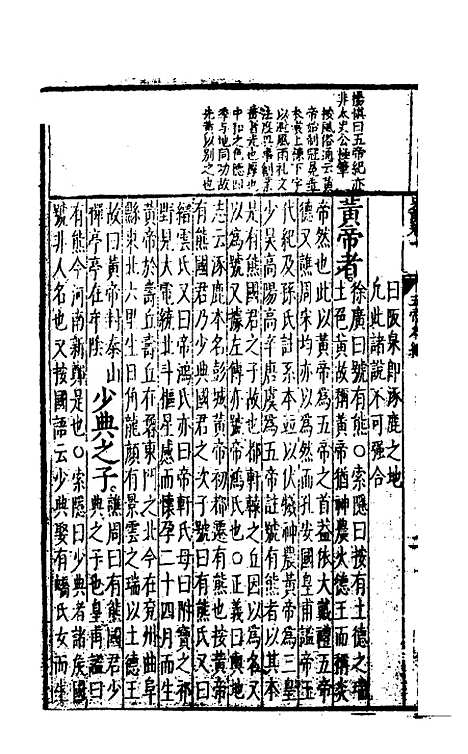 楊慎曰五帝紀亦
非太史公極筆
按風俗通云黃
帝始制冠冕垂
衣裳上棟下宇
以避風雨禮文
法度興事創業
黃者光也厚也
中和之色德四
季與地同功故
先黃以別之也
曰阪泉即涿鹿之地
凡此諸說不可強合
黃帝者
徐廣曰號有熊○索隱曰按有土德之瑞
土色黃故稱黃帝猶神農火德王而稱炎
帝然也此以黃帝為五帝之首蓋依大戴禮五帝
德又譙周宋均亦以為然而孔安國皇甫謐帝王
代紀及孫氏註系本並以伏犧神農黃帝為三皇
少昊高陽高辛唐虞為五帝註號有熊者以其本
是有熊國君之子故也都軒轅之丘因以為名又
以為號又據左傳亦號帝鴻氏也○正義曰輿地
志云涿鹿本名彭城黃帝初都遷有熊也按黃帝
有熊國君乃少典國君之次子號曰有熊氏又曰
縉雲氏又曰帝鴻氏亦曰帝軒氏母曰附寶之祁
野見大電繞北斗樞星感而懷孕二十四月而生
黃帝於壽丘壽丘在魯東門之北今在兗州曲阜
縣東北六里生日角龍顏有景雲之瑞以土德王
故曰黃帝封泰山
禪亭亭在牟陰
少典之子
譙周曰有熊國君少
典之子也皇甫謐曰
有熊今河南新鄭是也○索隱曰少典者諸侯國
號非人名也又按國語云少典娶有蟜氏女而生